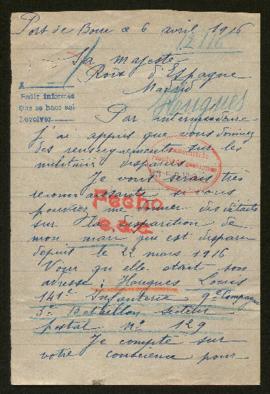 Port de Bouc a 6 avril 1916
12116
Sa majesté
Roix d'Espagne
Madrid
A
Pedir informes
Que se hace así
Devolver
Hougues
Par
j'ai appris que vous donniez
des renseignements sur les
militaires disparus.
Je vous serais très
reconnaissante si vous
pouviez me donner des détails
sur la disparition de
Fecho
mon mari qui est disparu
depuis le 22 mars 1916
Voici qu'elle était son
adresse: Hougues Louis
141e Infanterie 9e Compagnie
3e Bataillon secteur
postal No 129
Je compte sur
votre conscience pour